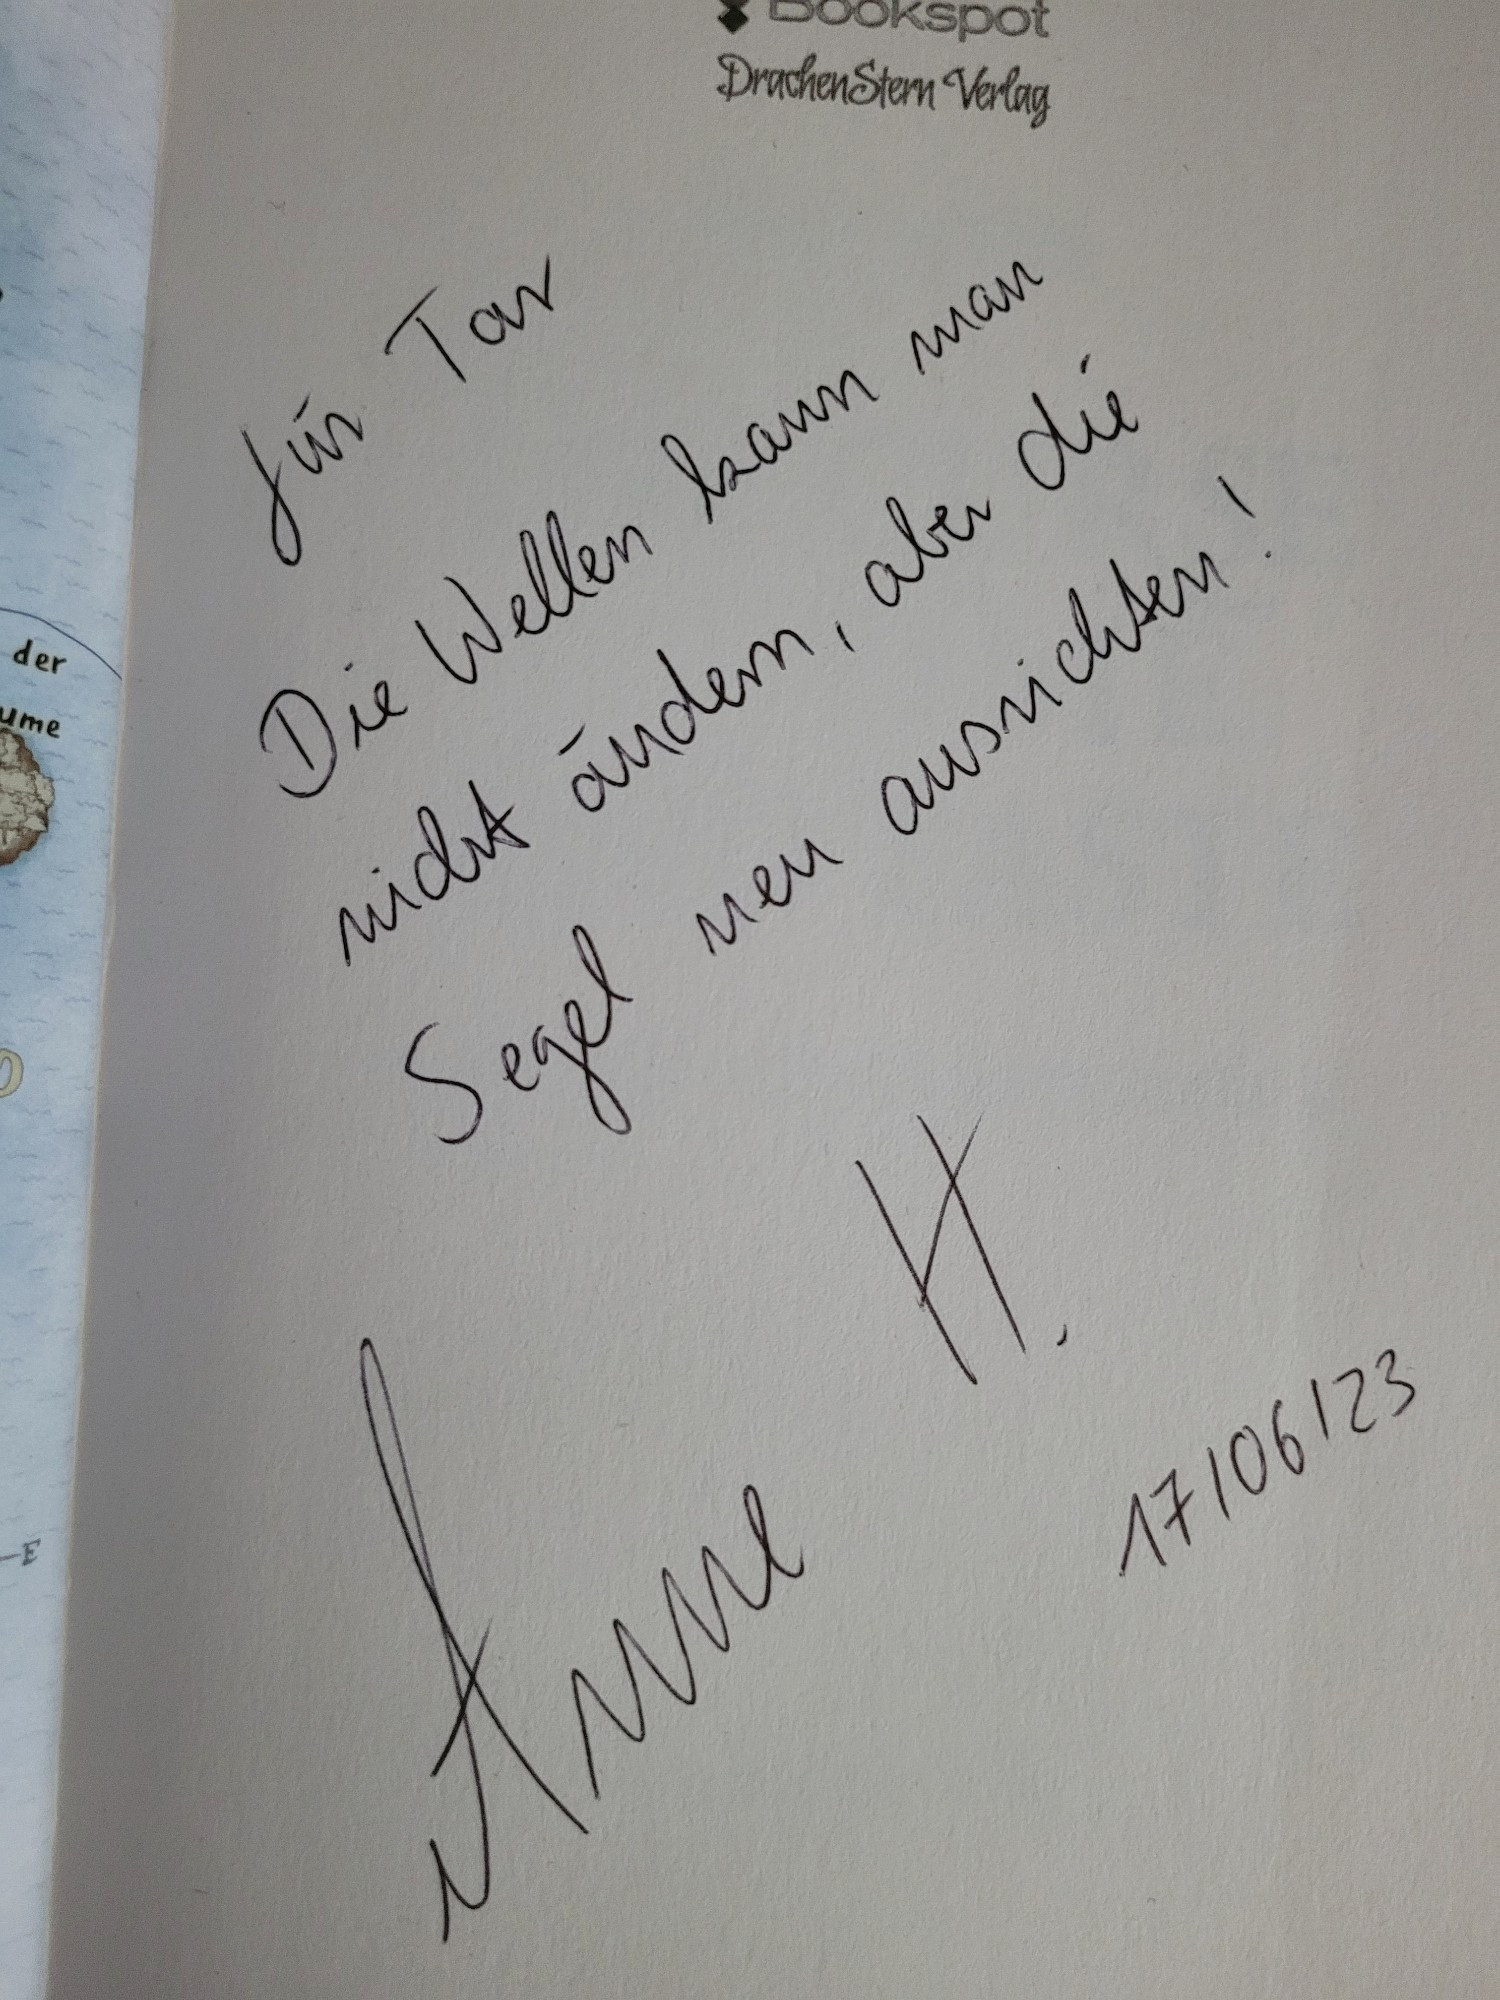 Bookspot
DrachenStern Verlag
für Tar
Die Wellen kann man
nicht ändern, aber die
Segel neu ausrichten!
Anne H.
17/06/23
der
ume
E